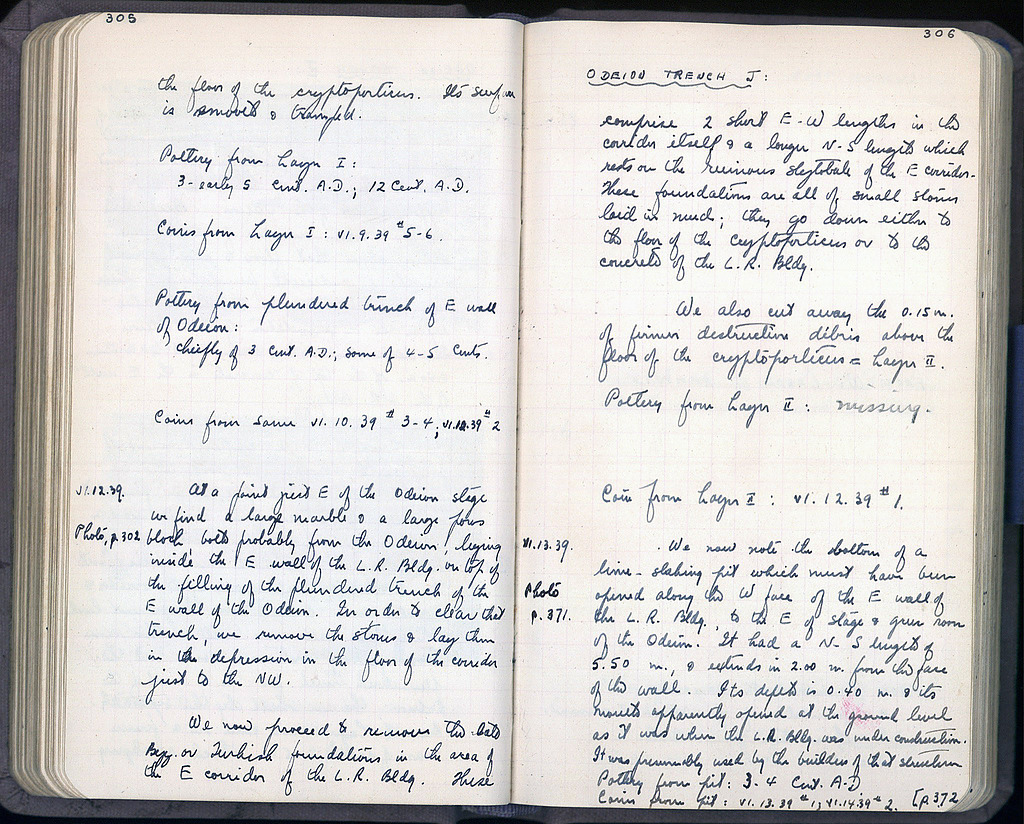 305
the floor of the cryptoporticus. Its surface
is smooth & trampled.
Pottery from Layer I:
3-early 5 Cent. A.D.; 12 Cent. A.D.
Coins from Layer I: VI.9.39 #5-6.
Pottery from plundered trench of E wall
of Odeion:
chiefly of 3 Cent. A.D.; some of 4-5 Cents.
Coins from same VI.10.39 #3-4; VI.12.39 #2
VI.12.39. At a point just E of the Odeion stage
we find a large marble & a large poros
Photo, p.302 block, both probably from the Odeion, lying
inside the E wall of the L.R. Bldg. on top of
the filling of the plundered trench of the
E wall of the Odeion. In order to clear that
trench, we remove the stones & lay them
in the depression in the floor of the corridor
just to the NW.
We now proceed to remove the late
Byz. or Turkish foundations in the area of
the E corridor of the L.R. Bldg. These
306
ODEION TRENCH J:
comprise 2 short E-W lengths in the
corridor itself & a longer N-S length which
rests on the ruinous stylobate of the E corridor.
These foundations are all of small stones
laid in mud; they go down either to
the floor of the cryptoporticus or to the
concrete of the L.R. Bldg.
We also cut away the 0.15 m.
of firmer destructive débris above the
floor of the cryptoporticus = Layer II.
Pottery from Layer II: missing.
Coin from Layer II: VI.12.39 #1.
VI.13.39. We now note the bottom of a
lime-slaking pit which must have been
Photo opened along the W face of the E wall of
p.371. the L.R. Bldg., to the E of stage & green room
of the Odeion. It had a N-S length of
5.50 m., & extends in 2.00 m. from the face
of the wall. Its depth is 0.40 m. & its
mouth apparently opened at the ground level
as it was when the L.R. Bldg. was under construction.
It was presumably used by the builders of that structure
Pottery from pit: 3-4 Cent. A.D.
Coins from pit: VI.13.39 #1; VI.14.39 #2. [p.372